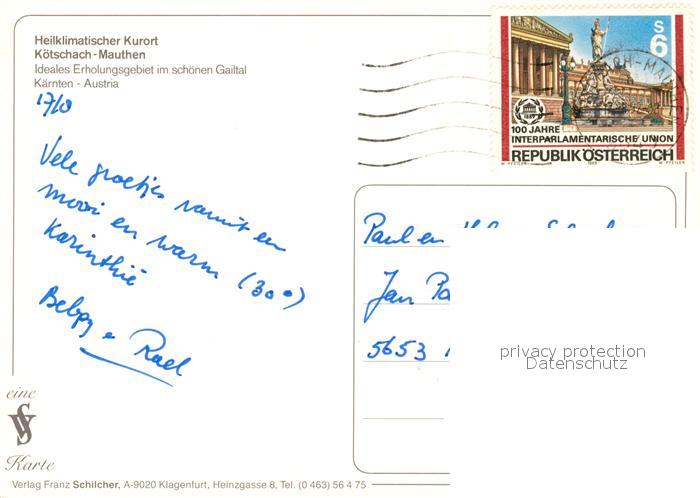 Heilklimatischer Kurort
Kötschach-Mauthen
Ideales Erholungsgebiet im schönen Gailtal
Kärnten - Austria
Vele groetjes vanuit een
mooi en warm (30°)
Karinthië
S
6
100 JAHRE
INTERPARLAMENTARISCHE UNION
REPUBLIK ÖSTERREICH
W. PFEILER 1989 W. PFEILER
Paul en
Jan
5653
privacy protection
Datenschutz
eine
Karte
Verlag Franz Schilcher, A-9020 Klagenfurt, Heinzgasse 8, Tel. (0 463) 56 4 75